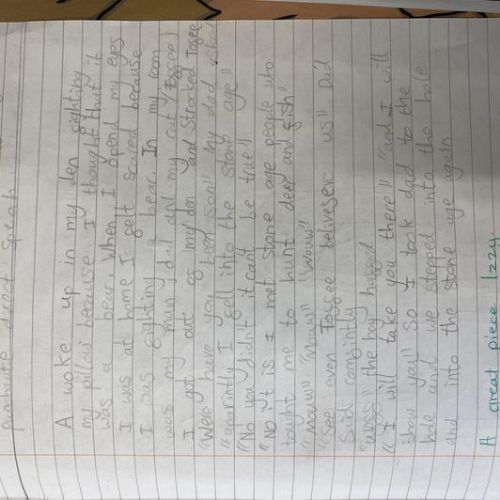 punctuate direct speech
A woke up in my den fighting
my pillow because I thought that it
was a bear, When I opend my eyes
I was at home I felt scared because
I was fighting a bear. In my room
was my mum, dad and my cat (Toffee)
I got out of my den and stroked Toffee
"Were have you been son" my dad asked
I fell into the stone age"
"No you didn't it cant be true"
"No it is I met stone age people who
tought me to hunt deer and fish"
"Meow" "Meow" "Meow"
"See even Toffee beliveser us" Dad
said
the boy huffed
"I will take you there" "and I will
show you" So I took dad to the
hole and we stepped into the hole
and into the stone age again
A great piece Izzy